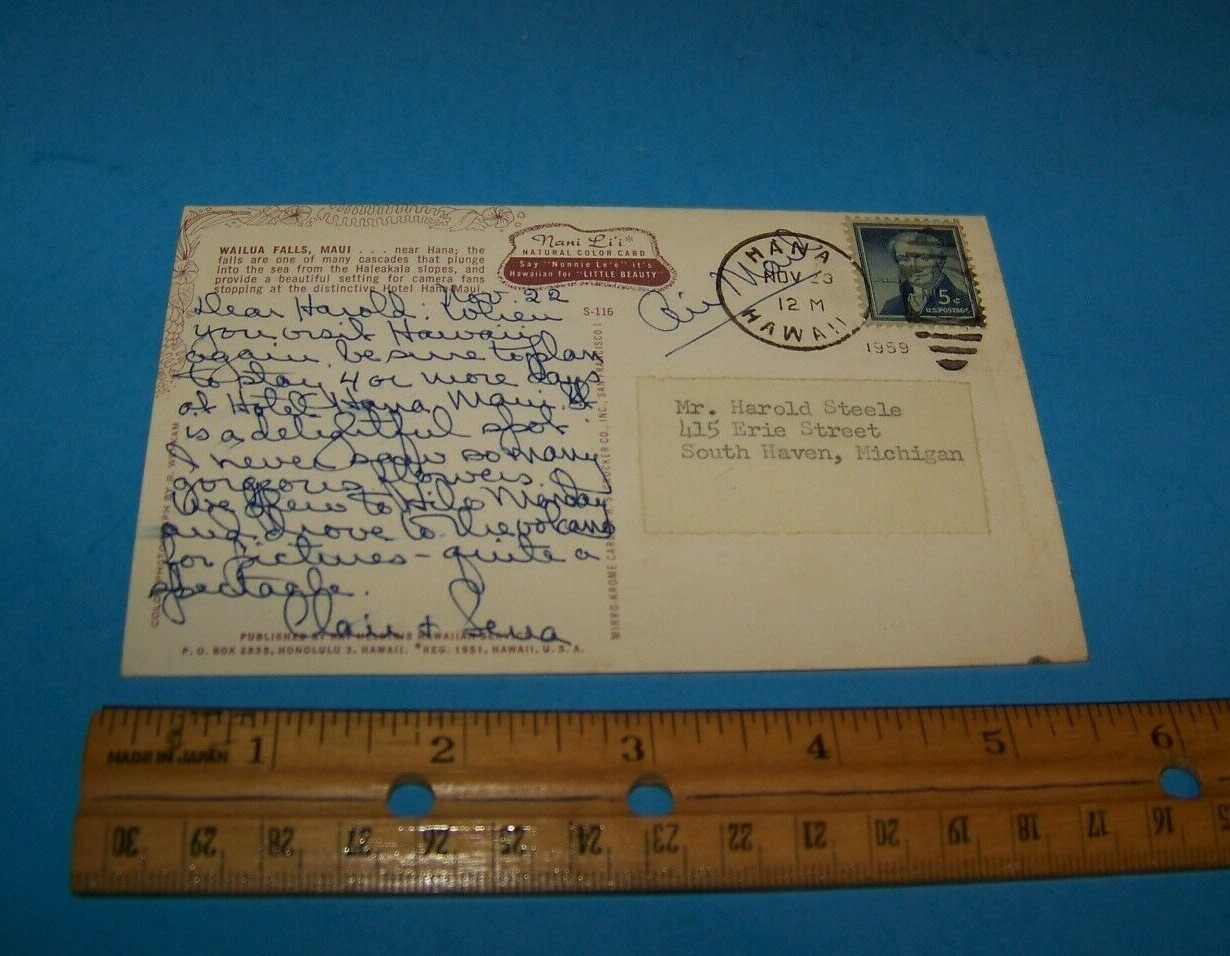 WAILUA FALLS, MAUI . . . near Hana; the
falls are one of many cascades that plunge
into the sea from the Haleakala slopes, and
provide a beautiful setting for camera fans
stopping at the distinctive Hotel Hana-Maui.
Nani Li'i*
NATURAL COLOR CARD
Say "Nonnie Le'e" it's
Hawaiian for "LITTLE BEAUTY"
S-116
Nov. 22
Dear Harold: When
you visit Hawaii
again be sure to plan
to stay 4 or more days
at Hotel Hana Maui. It
is a delightful spot.
I never saw so many
gorgeous flowers.
We flew to Hilo Monday
and drove to the volcano
for pictures - quite a
spectacle.
Clair +
PUBLISHED BY HAWAIIAN
P. O. BOX 2835, HONOLULU 3, HAWAII. *REG. 1951, HAWAII, U.S.A.
COLOR PHOTOGRAPH BY R. WENKAM
MIRRO-KROME CARD BY H. S. CROCKER CO., INC., SAN FRANCISCO 1
Air Mail
HANA
NOV 23
12 M
HAWAII
1959
5¢
U.S. POSTAGE
Mr. Harold Steele
415 Erie Street
South Haven, Michigan
MADE IN JAPAN
1 2 3 4 5 6
30 29 28 27 26 25 24 23 22 21 20 19 18 17 16